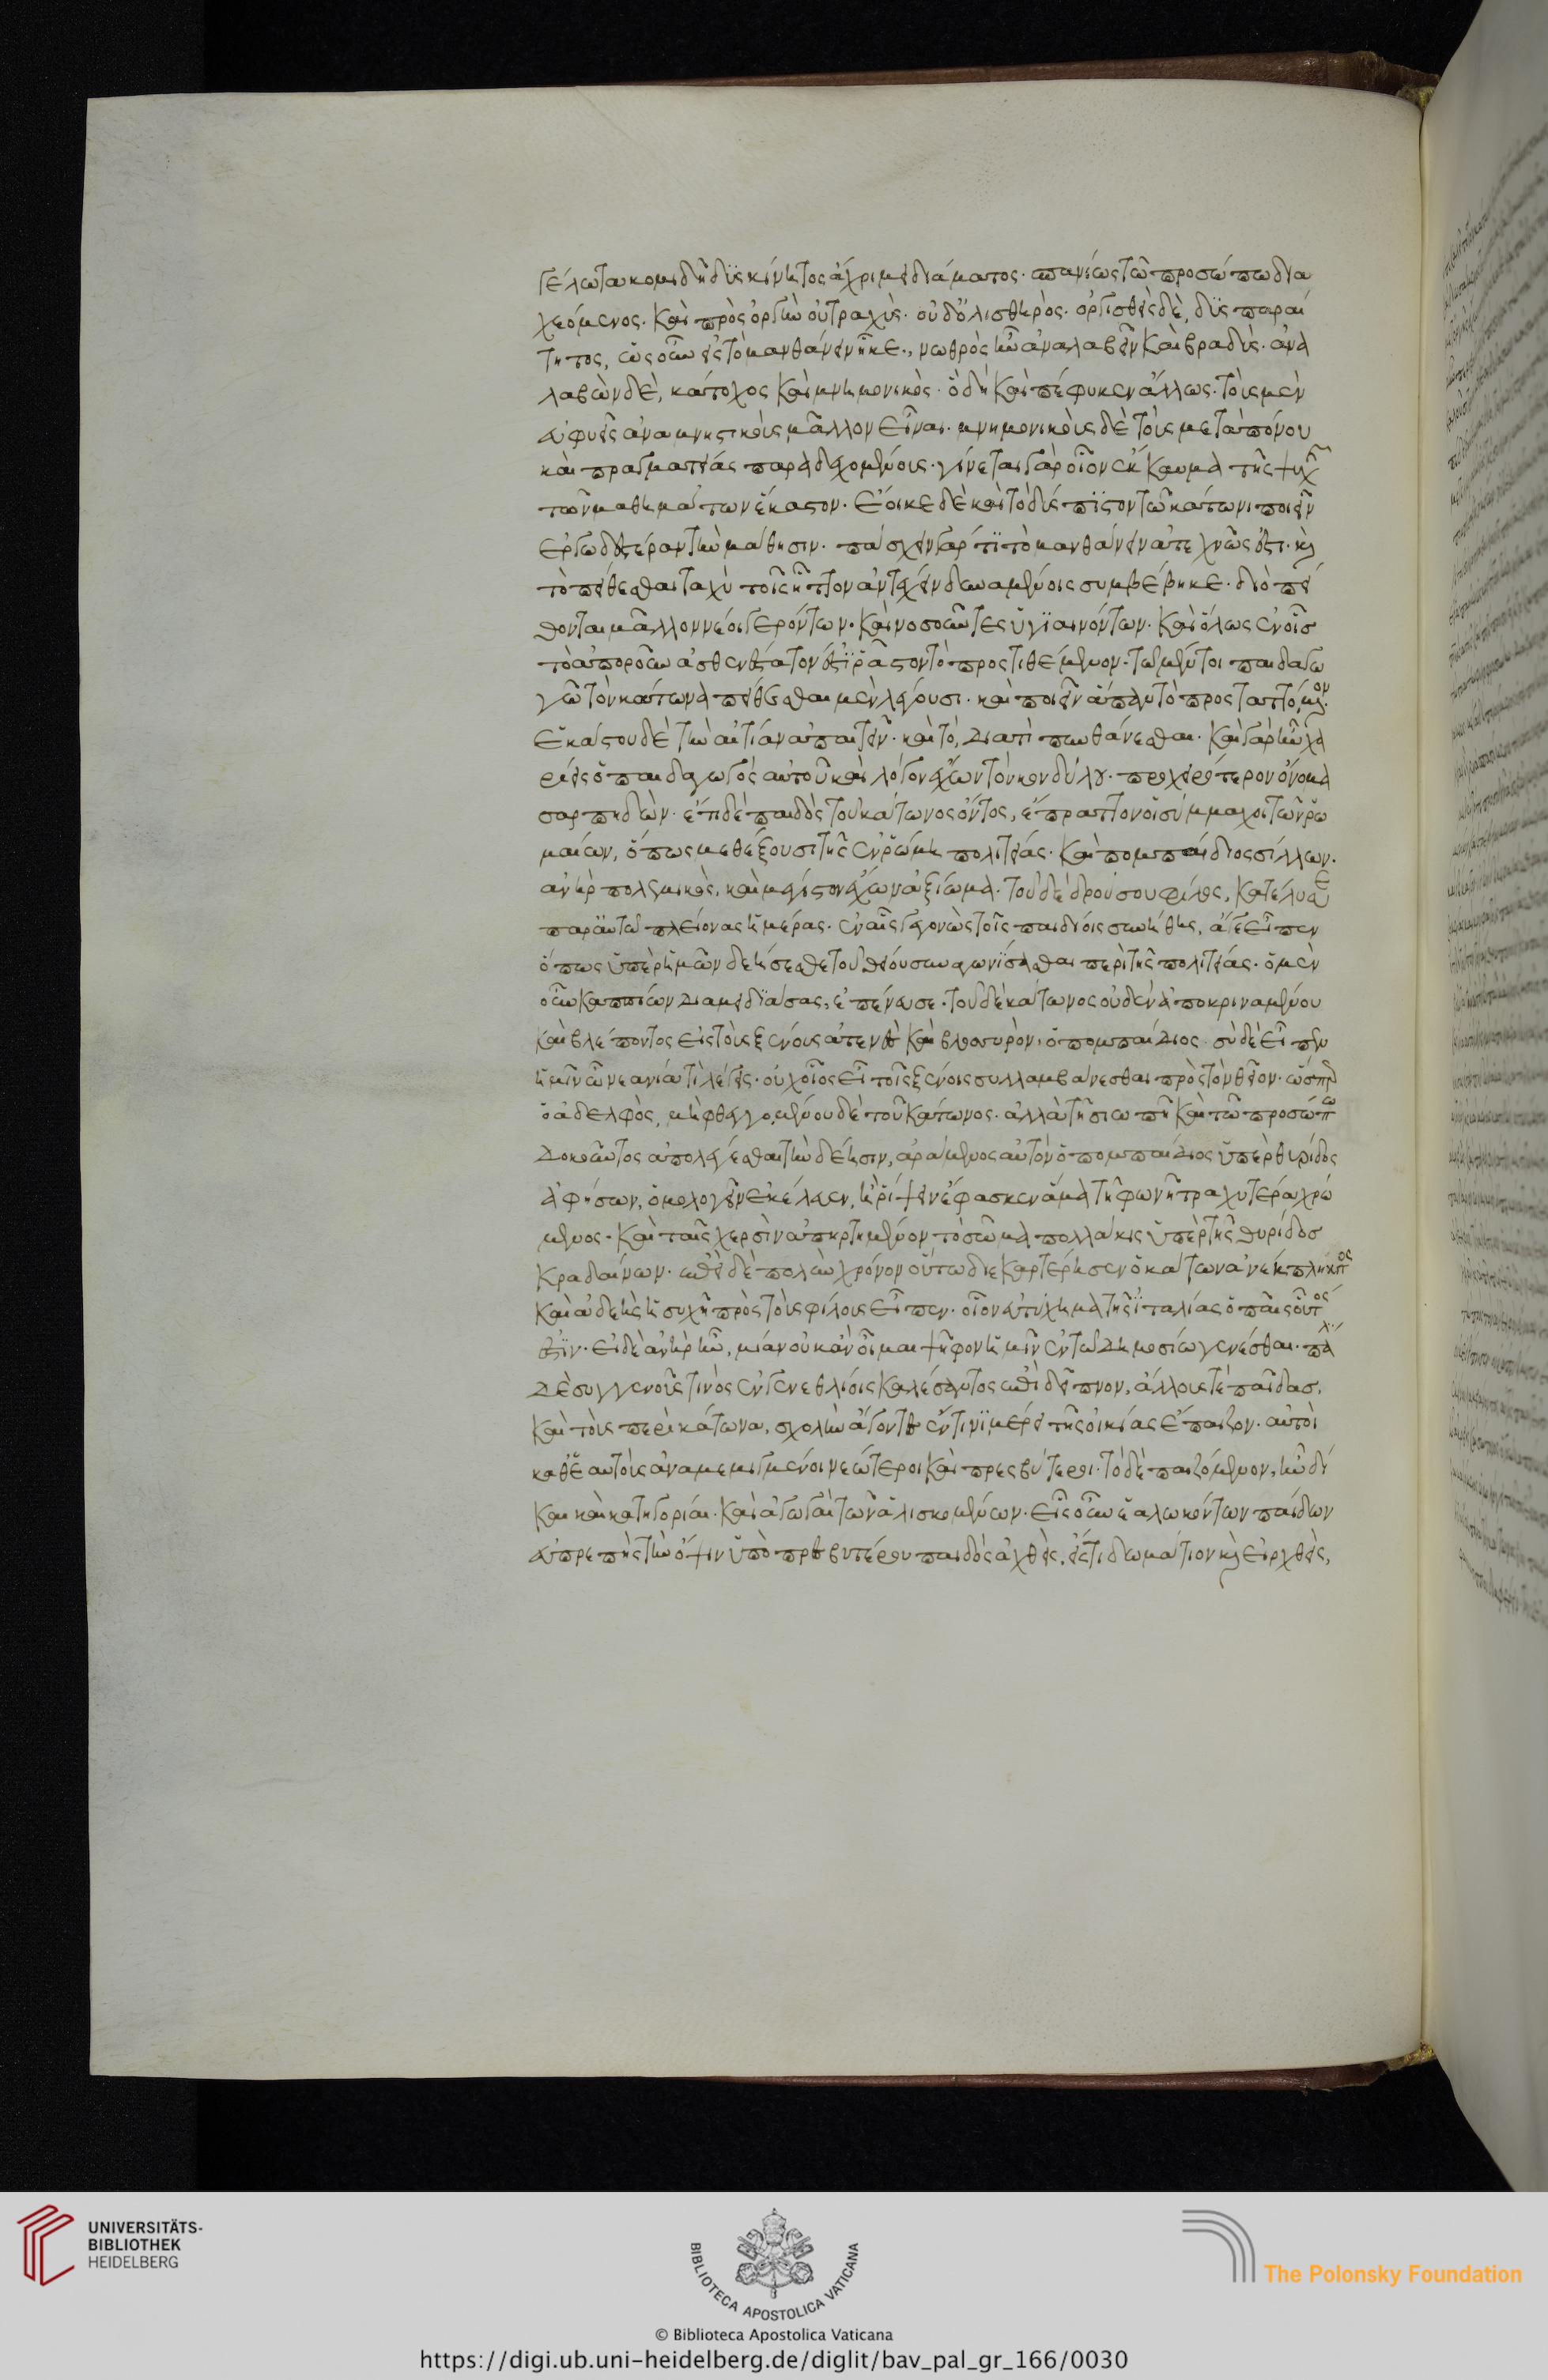 γέλωτα κομιδῆ δυσκίνητος ἄχρι μειδιάματος. σπανίως τῶ προσώπω δια
χεόμενος. καὶ πρὸς ὀργὴν οὐ τραχὺς. οὐδ' ὀλισθηρὸς. ὀργισθεὶς δὲ, δυσπαραί
τητος, ὡς οὖν εἰς τὸ μανθάνειν ἧκε., νωθρὸς ἦν ἀναλαβεῖν καὶ βραδὺς. ἀνα
λαβὼν δὲ, κάτοχος καὶ μνημονικὸς. ὃ δὴ καὶ πέφυκεν ἄλλως. τοὺς μὲν
εὐφυεῖς ἀναμνηστικοὺς μᾶλλον εἶναι. μνημονικοὺς δὲ τοὺς μετὰ πόνου
καὶ πραγματείας παραδεχομένους. γίνεται γὰρ οἷον ἔκκαυμα τῆς ψυχῆς
τῶν μαθημάτων ἕκαστον. ἔοικε δὲ καὶ τὸ δύσπιστον τῶ κάτωνι ποιεῖν
ἐργωδεστέραν τὴν μάθησιν. πάσχειν γάρ τι τὸ μανθάνειν ἀτεχνῶς ἐστι. καὶ
τὸ πείθεσθαι ταχὺ τοῖς ἧττον ἀντέχειν δυναμένοις συμβέβηκε. διὸ πεί
θονται μᾶλλον νέοι γερόντων. καὶ νοσοῦντες ὑγιαινόντων. καὶ ὅλως ἐν οἷσ
τὸ ἀποροῦν ἀσθενέστατόν ἐστι ῥᾶστον τὸ προστιθέμενον. τῶ μέντοι παιδαγω
γῶ τὸν κάτωνα πείθεσθαι μὲν λέγουσι. καὶ ποιεῖν ἅπαν τὸ προσταττόμενον.
ἑκάστου δὲ τὴν αἰτίαν ἀπαιτεῖν. καὶ τὸ, διατὶ πυνθάνεσθαι. καὶ γὰρ ἦν χα
ρίεις ὁ παιδαγωγός αὐτοῦ καὶ λόγον ἔχων τὸν κονδύλου. προχειρότερον ὄνομα
σαρπηδὼν. ἔτι δὲ παιδὸς τοῦ κάτωνος ὄντος, ἔπραττον οἱ σύμμαχοι τῶν ῥω
μαίων, ὅπως μεθέξουσι τῆς ἐν ῥώμη πολιτείας. καὶ πομπαίδιος σίλλων.
ἀνὴρ πολεμικὸς, καὶ μέγιστον ἔχων ἀξίωμα. τοῦ δὲ δρούσου φίλος, κατέλυσε
παρ' αὐτῶ πλείονας ἡμέρας. ἐν αἷς γεγονὼς τοῖς παιδίοις συνήθης, ἄγε εἶπεν
ὅπως ὑπὲρ ἡμῶν δεήσεσθε τοῦ θείου συναγωνίσασθαι περὶ τῆς πολιτείας. ὁ μὲν
οὖν καππιών διαμειδιάσας, ἐπένευσε. τοῦ δὲ κάτωνος οὐδὲν ἀποκριναμένου
καὶ βλέποντος εἰς τοὺς ξένους ἀτενὲς καὶ βλοσυρὸν, ὁ πομπαίδιος. σὺ δὲ εἶπεν
ἡμῖν ὦ νεανία τί λέγεις. οὐχ οἷος εἶ τοῖς ξένοις συλλαμβάνεσθαι πρὸς τὸν θεῖον. ὥσπερ
ὁ ἀδελφὸς, μὴ φθεγγομένου δὲ τοῦ κάτωνος. ἀλλὰ τῆ σιωπῆ καὶ τῶ προσώπω
δοκοῦντος ἀπολέγεσθαι τὴν δέησιν, ἀράμενος αὐτὸν ὁ πομπαίδιος ὑπὲρ θυρίδος
ἀφήσων, ὁμολογεῖν ἐκέλευεν, ἢ ῥίψειν ἔφασκεν ἅμα τῆ φωνῆ τραχυτέρα χρώ
μενος. καὶ ταῖς χερσὶν ἀπηρτημένον τὸ σῶμα πολλάκις ὑπὲρ τῆς θυρίδοσ
κραδαίνων. ἐπεὶ δὲ πολὺν χρόνον οὕτω διεκαρτέρησεν ὁ κάτων ἀνέκπληκτος
καὶ ἀδεὴς ἡσυχῆ πρὸς τοὺς φίλους εἶπεν. οἷον εὐτύχημα τῆς ἰταλίας ὁ παῖς οὗτός
ἐστιν. εἰ δὲ ἀνὴρ ἦν, μίαν οὐκ ἂν οἶμαι ψῆφον ἡμῖν ἐν τῶ δημοσίω γενέσθαι. πάλιν
δὲ συγγενοῦς τινὸς ἐν γενεθλίοις καλέσαντος ἐπὶ δεῖπνον, ἄλλους τὲ παῖδασ,
καὶ τοὺς περὶ κάτωνα, σχολὴν ἄγοντες ἔν τινι μέρει τῆς οἰκίας ἔπαιζον. αὐτοὶ
καθ' ἑαυτοὺς ἀναμεμιγμένοι νεώτεροι καὶ πρεσβύτεροι. τὸ δὲ παιζόμενον, ἦν δί
και καὶ κατηγορίαι. καὶ ἀγωγαὶ τῶν ἁλισκομένων. εἷς οὖν ἑαλωκότων παίδων
εὐπρεπὴς τὴν ὄψιν ὑπὸ πρεσβυτέρου παιδὸς ἀχθεὶς, εἴς τι δωμάτιον καὶ εἰρχθεὶς,
UNIVERSITÄTS-
BIBLIOTHEK
HEIDELBERG
BIBLIOTECA APOSTOLICA VATICANA
The Polonsky Foundation
© Biblioteca Apostolica Vaticana
https://digi.ub.uni-heidelberg.de/diglit/bav_pal_gr_166/0030